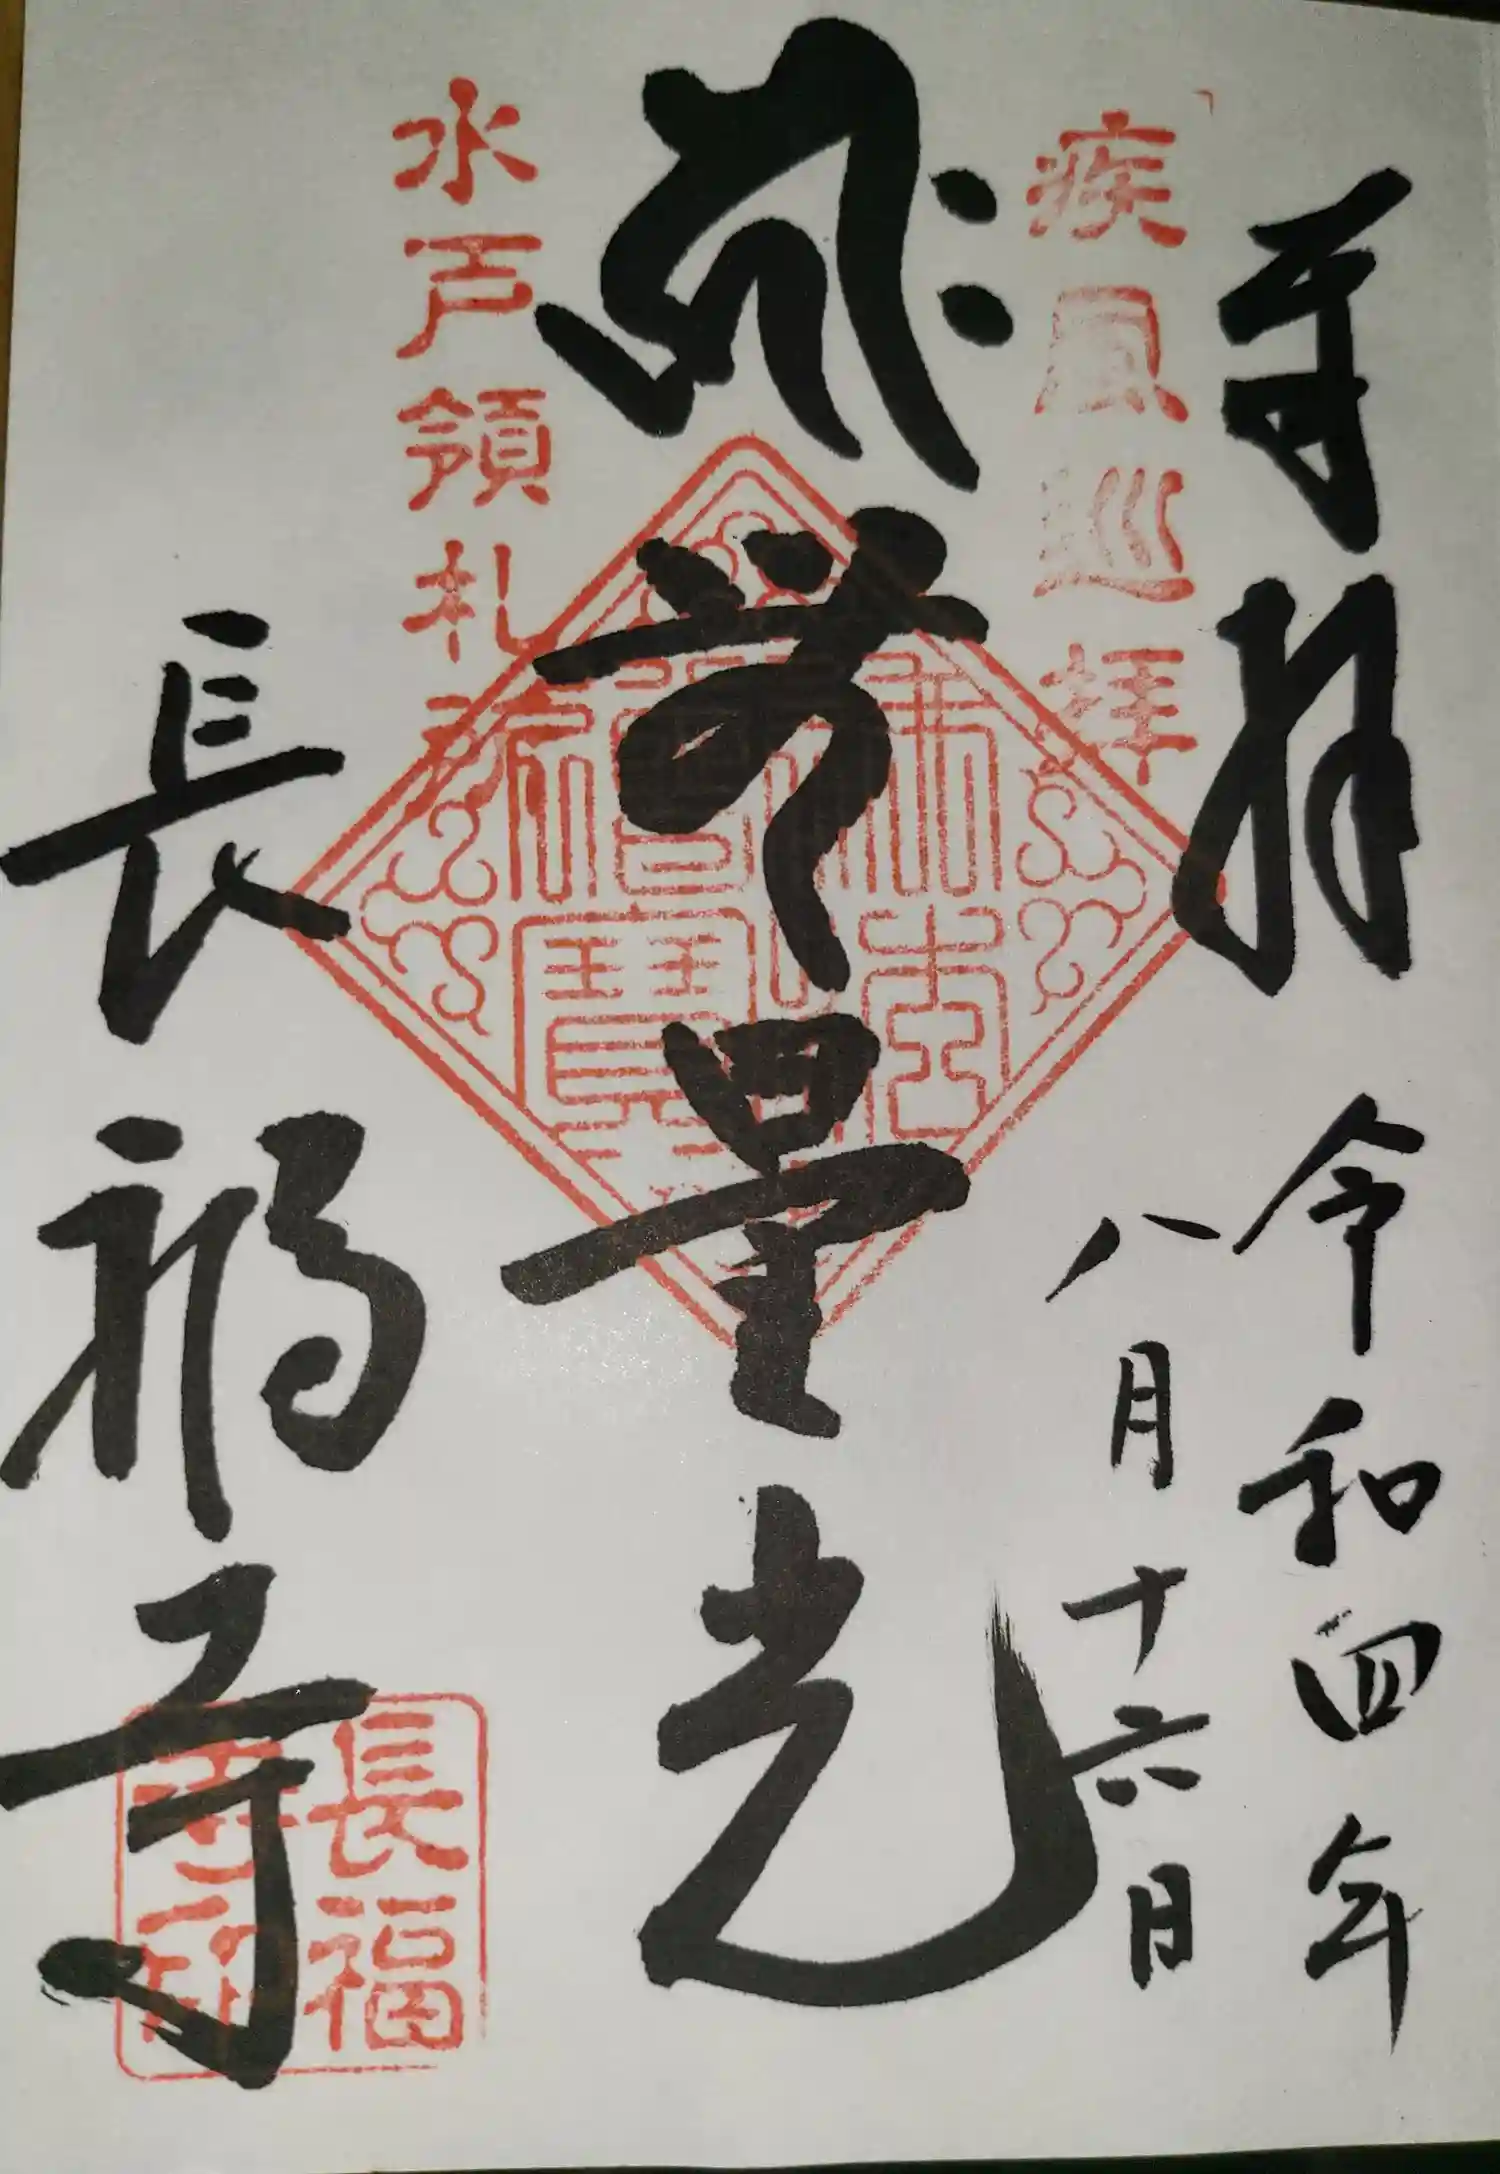 奉拝 令和四年
八月十六日
疾風巡拝
無量光
佛法僧寶
水戸領札所
長福寺
長福寺印